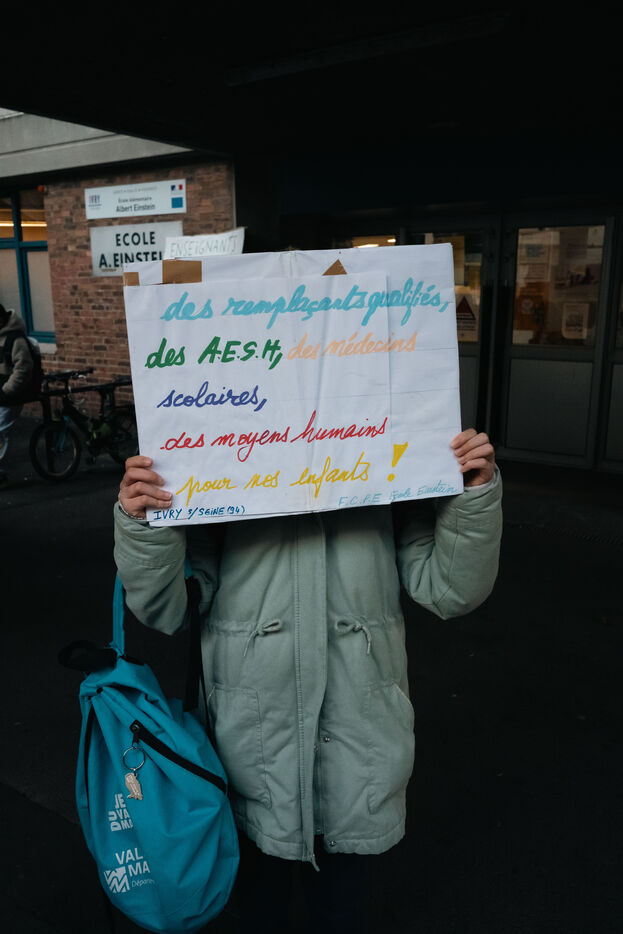 IVRY
École élémentaire
Albert Einstein
ECOLE
A.EINSTEI
ENSEIGNANTS
des remplaçants qualifiés,
des A.E.S.H, des médecins
scolaires,
des moyens humains
pour nos enfants !
IVRY S/SEINE (94)
F.C.P.E École Einstein
JE
DU VA
MA
VAL
MA
Départe